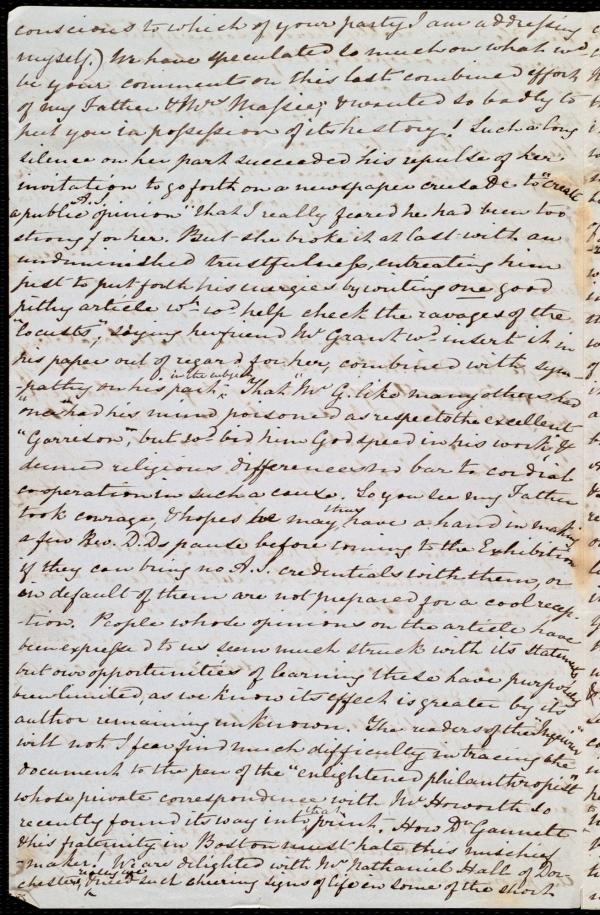 conscious to which of your party I am addressing
myself.) We have speculated so much on what wd
be your comment on this last combined effort
of my Father & Mrs Massie; & wanted so badly to
put you in possession of its history! Such a long
silence on her part succeeded his repulse of her
invitation to go forth on a newspaper crusade to "create
a public A.S. opinion" that I really feared he had been too
strong for her. But she broke it at last with an
undiminished trustfulness, entreating him
just to put forth his energies by writing one good
pithy article wh wd help check the ravages of the
"locusts", saying her friend Mr Grant wd insert it in
his paper out of regard for her, combined with sym-
-pathy on his part in the subject. That "Mr G. like many others had
"once" had his mind poisoned as respects the excellent
"Garrison", but wd bid him God speed in his work, &
deemed religious differences no bar to cordial
cooperation in such a cause. So you see my Father
took courage, & hopes he may thus have a hand in making
a few Rev. D.Ds pause before coming to the Exhibition
if they can bring no A.S. credentials with them, or
in default of them are not prepared for a cool recep-
tion. People whose opinions on the article have
been expressed to us seem much struck with its statements,
but our opportunities of learning these have purposely
been limited, as we know its effect is greater by its
author remaining unknown. The readers of the "Inquirer"
will not I fear find much difficulty in tracing the
document to the pen of the "enlightened philanthropist"
whose private correspondence with Mr Howorth so
recently found its way into that print. How Dr Gannett
& his fraternity in Boston must hate this mischief
-maker! We are delighted with Mr Nathaniel Hall of Dor-
chester, & such cheering signs of life in some of the short